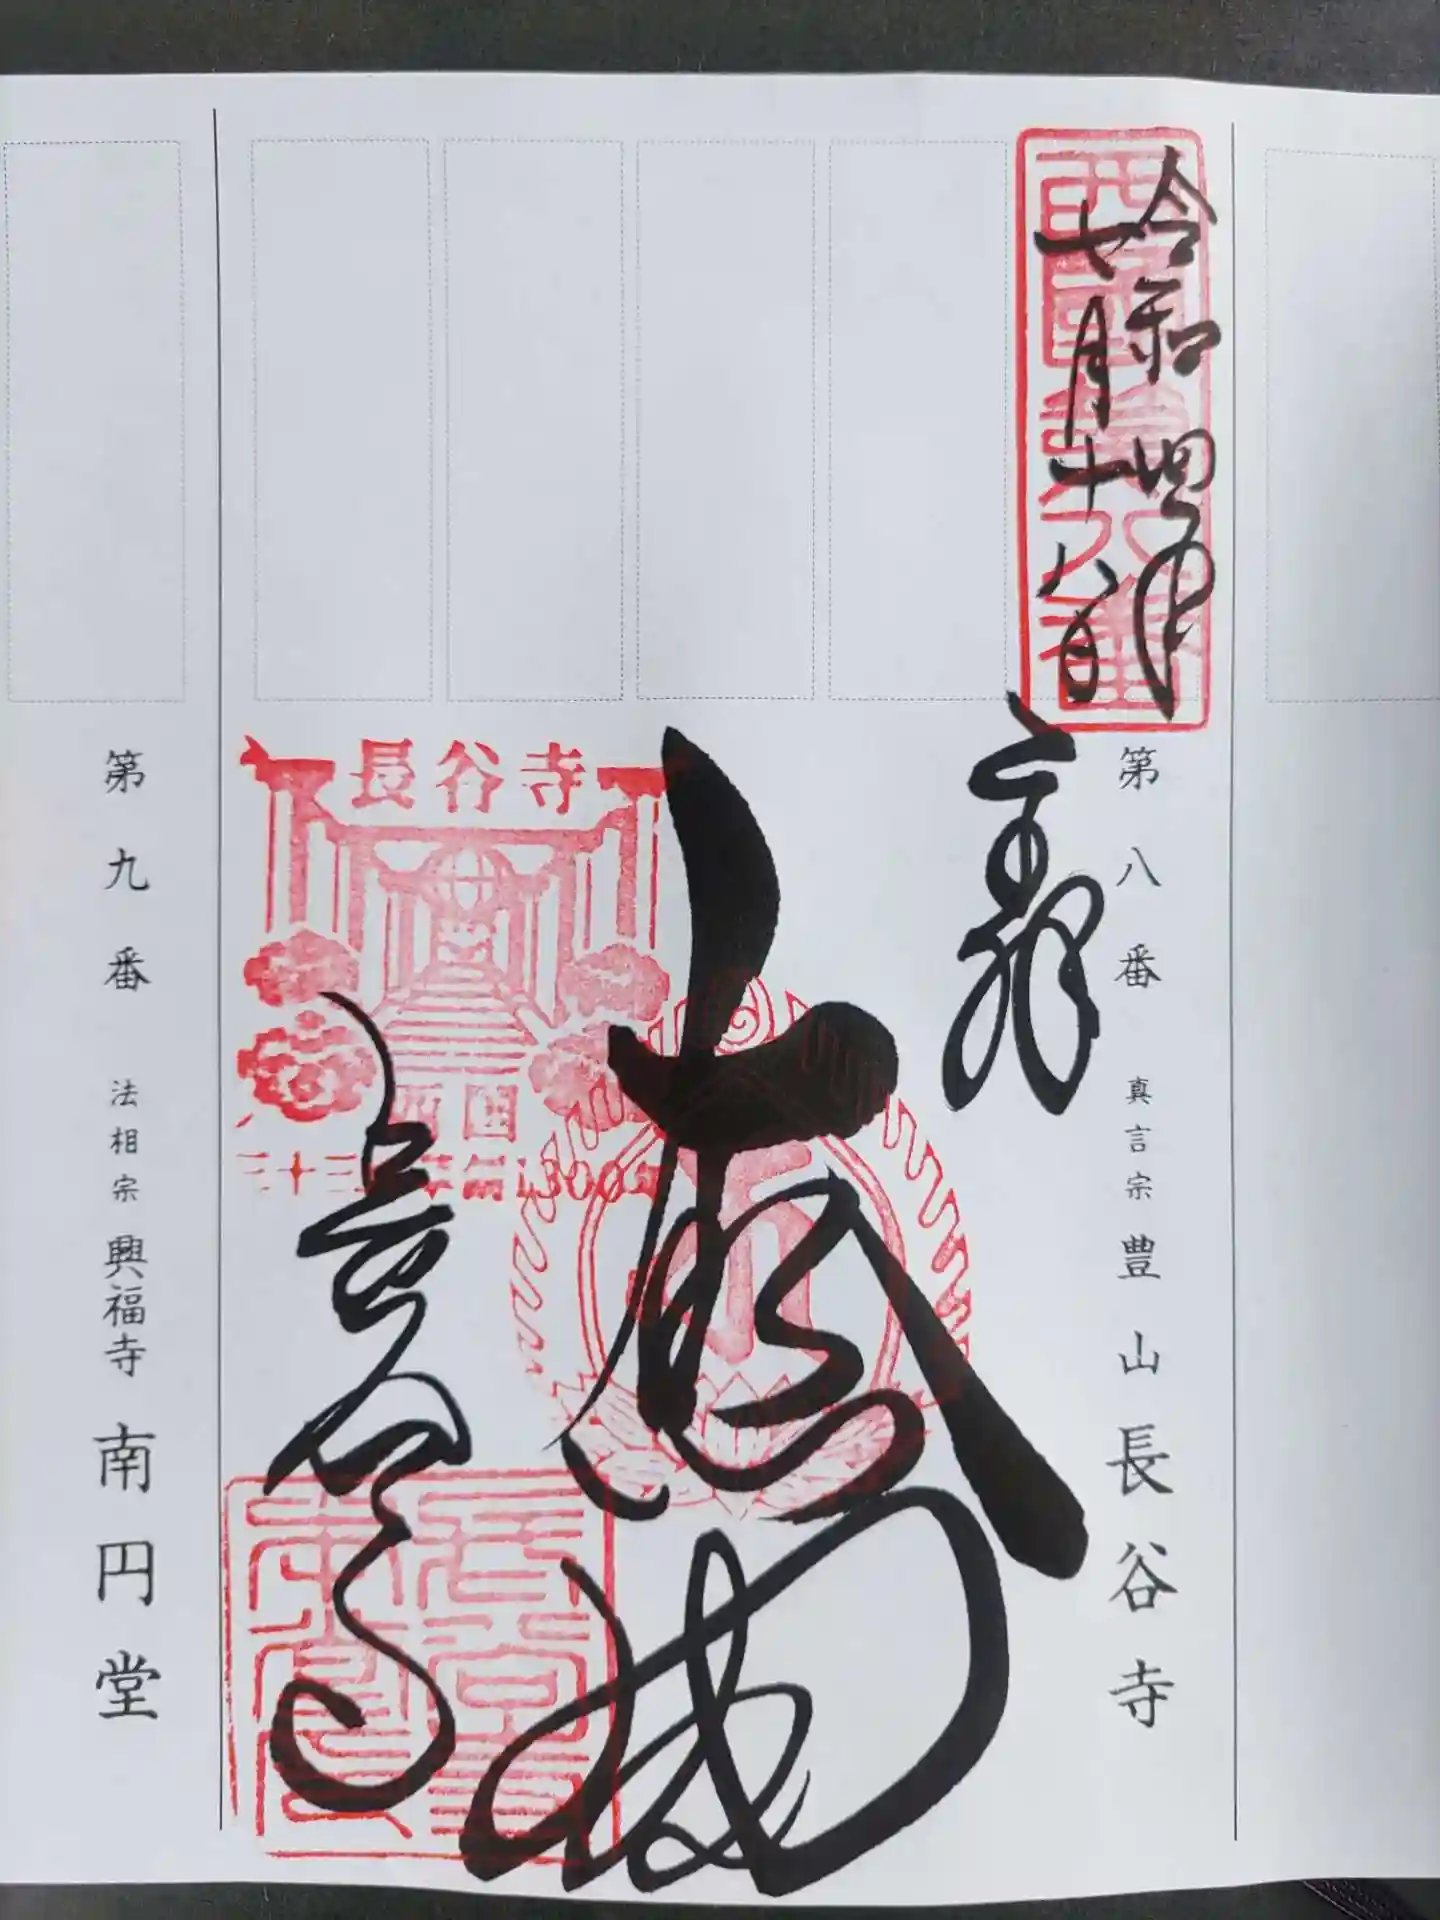 令和四年
七月十八日
西国第八番
第八番 真言宗 豊山 長谷寺
奉拝
大悲閣
長谷寺
西国
三十三
長谷寺
第九番 法相宗 興福寺 南円堂